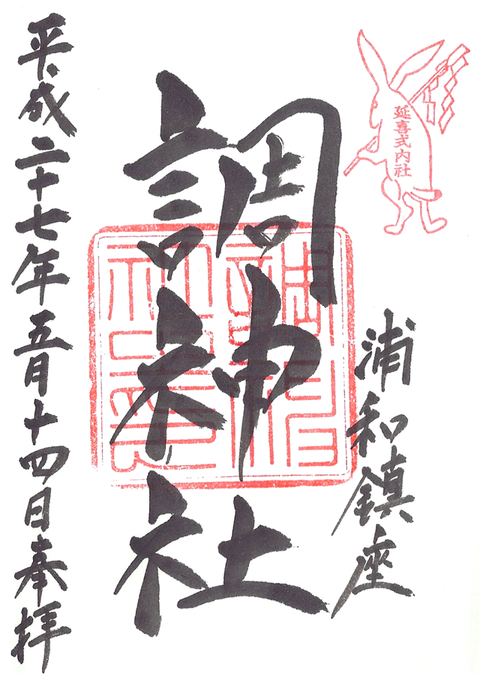 延喜式内社
浦和鎮座
調神社
平成二十七年五月十四日奉拝